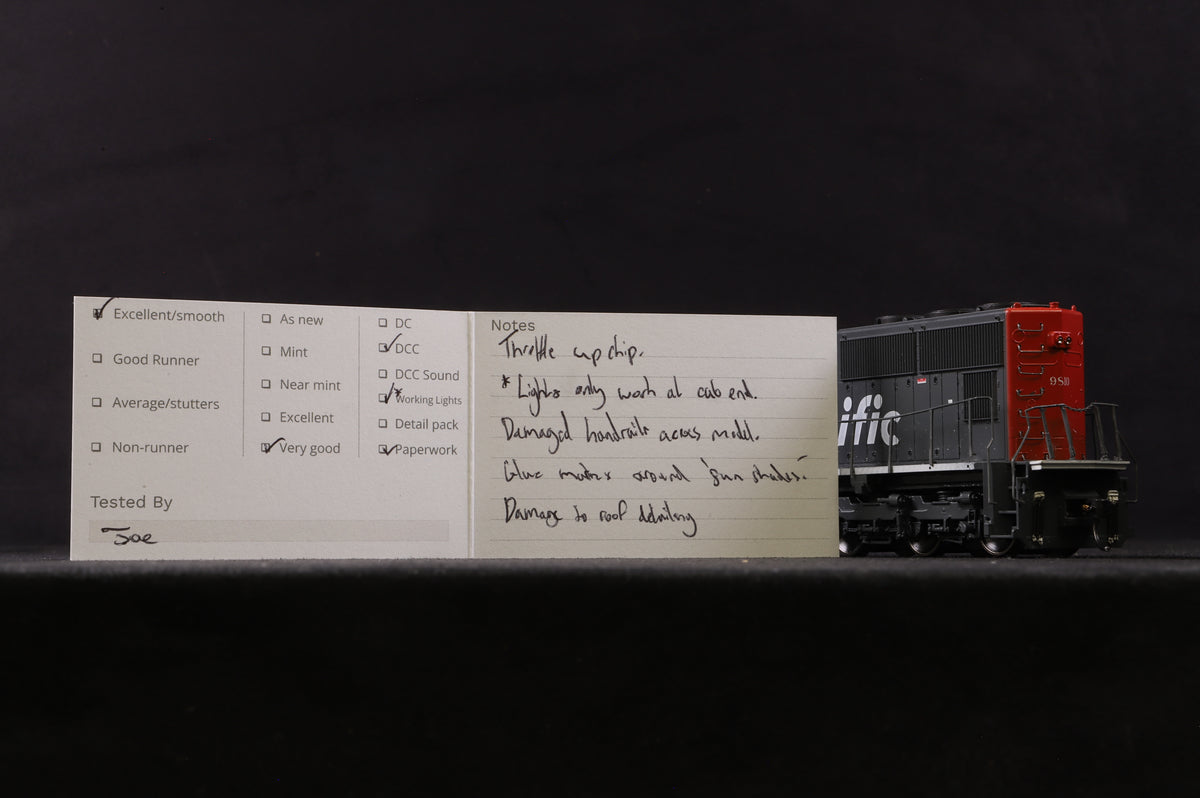 Excellent/smooth
Good Runner
Average/stutters
Non-runner
As new
Mint
Near mint
Excellent
Very good
DC
DCC
DCC Sound
* Working Lights
Detail pack
Paperwork
Tested By
Joe
Notes
Throttle up chip.
* Lights only work at cab end.
Damaged handrails across model.
Glue marks around 'sun shades'.
Damage to roof detailing
ific
9810